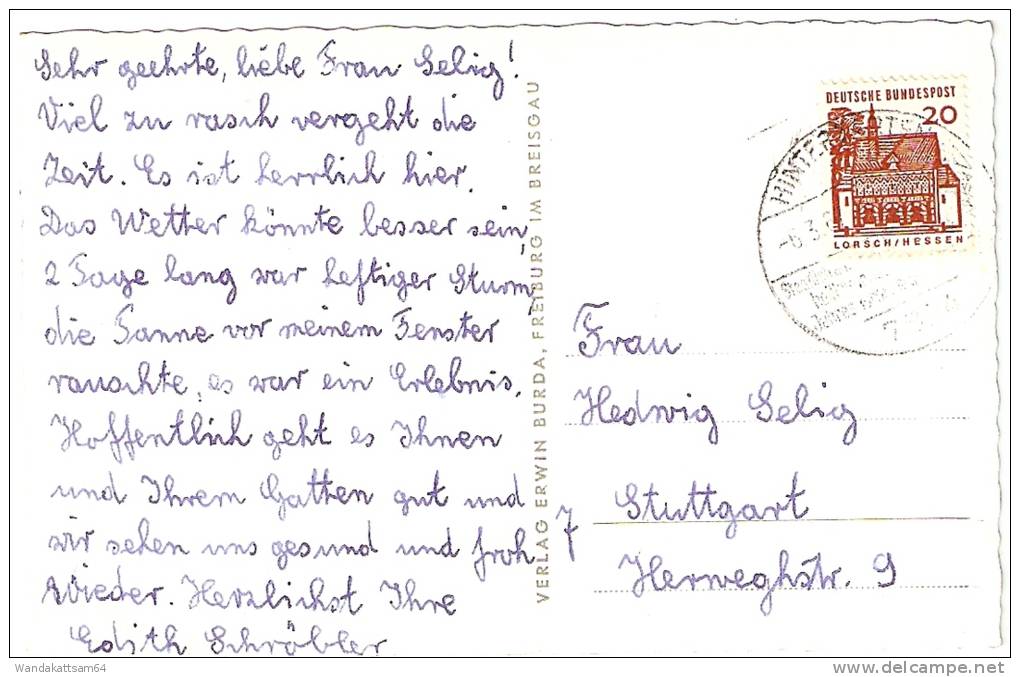 Sehr geehrte, liebe Frau Selig!
Viel zu rasch vergeht die
Zeit. Es ist herrlich hier.
Das Wetter könnte besser sein,
2 Tage lang war heftiger Sturm,
die Tanne vor meinem Fenster
rauschte, es war ein Erlebnis.
Hoffentlich geht es Ihnen
und Ihrem Gatten gut und
wir sehen uns gesund und froh
wieder. Herzlichst Ihre
Edith Schröbler
VERLAG ERWIN BURDA, FREIBURG IM BREISGAU
DEUTSCHE BUNDESPOST
20
LORSCH/HESSEN
HINTER
-6.3.
Frau
Hedwig Selig
7 Stuttgart
Herweghstr. 9
Wandakattsam64
delcampe.net